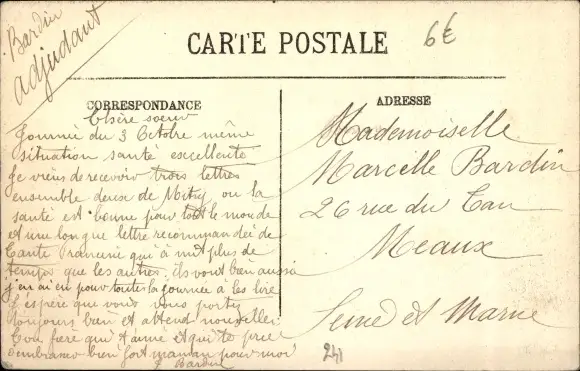 Bardin
adjudant
6€
CARTE POSTALE
CORRESPONDANCE
ADRESSE
Chère soeur
Journée du 3 Octobre même
situation santé excellente
je viens de recevoir trois lettres
ensemble deux de Mitry ou la
santé est bonne pour tout le monde
et une longue lettre recommandée de
tante Francine qui à mit plus de
temps que les autres. ils vont bien aussi
j'en ai eu pour toute la journée à les lire
J'espère que vous vous portez
toujours bien et attend nouvelles
Ton frère qui t'aime et qui te prie
embrasser bien fort maman pour moi
Bardin
Mademoiselle
Marcelle Bardin
26 rue du Tan
Meaux
Seine et Marne
241